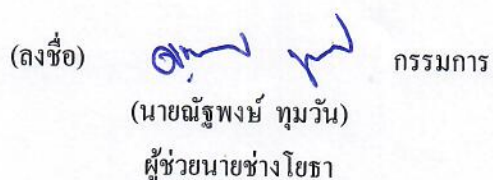 (ลงชื่อ) กรรมการ
(นายณัฐพงษ์ ทุมวัน)
ผู้ช่วยนายช่างโยธา